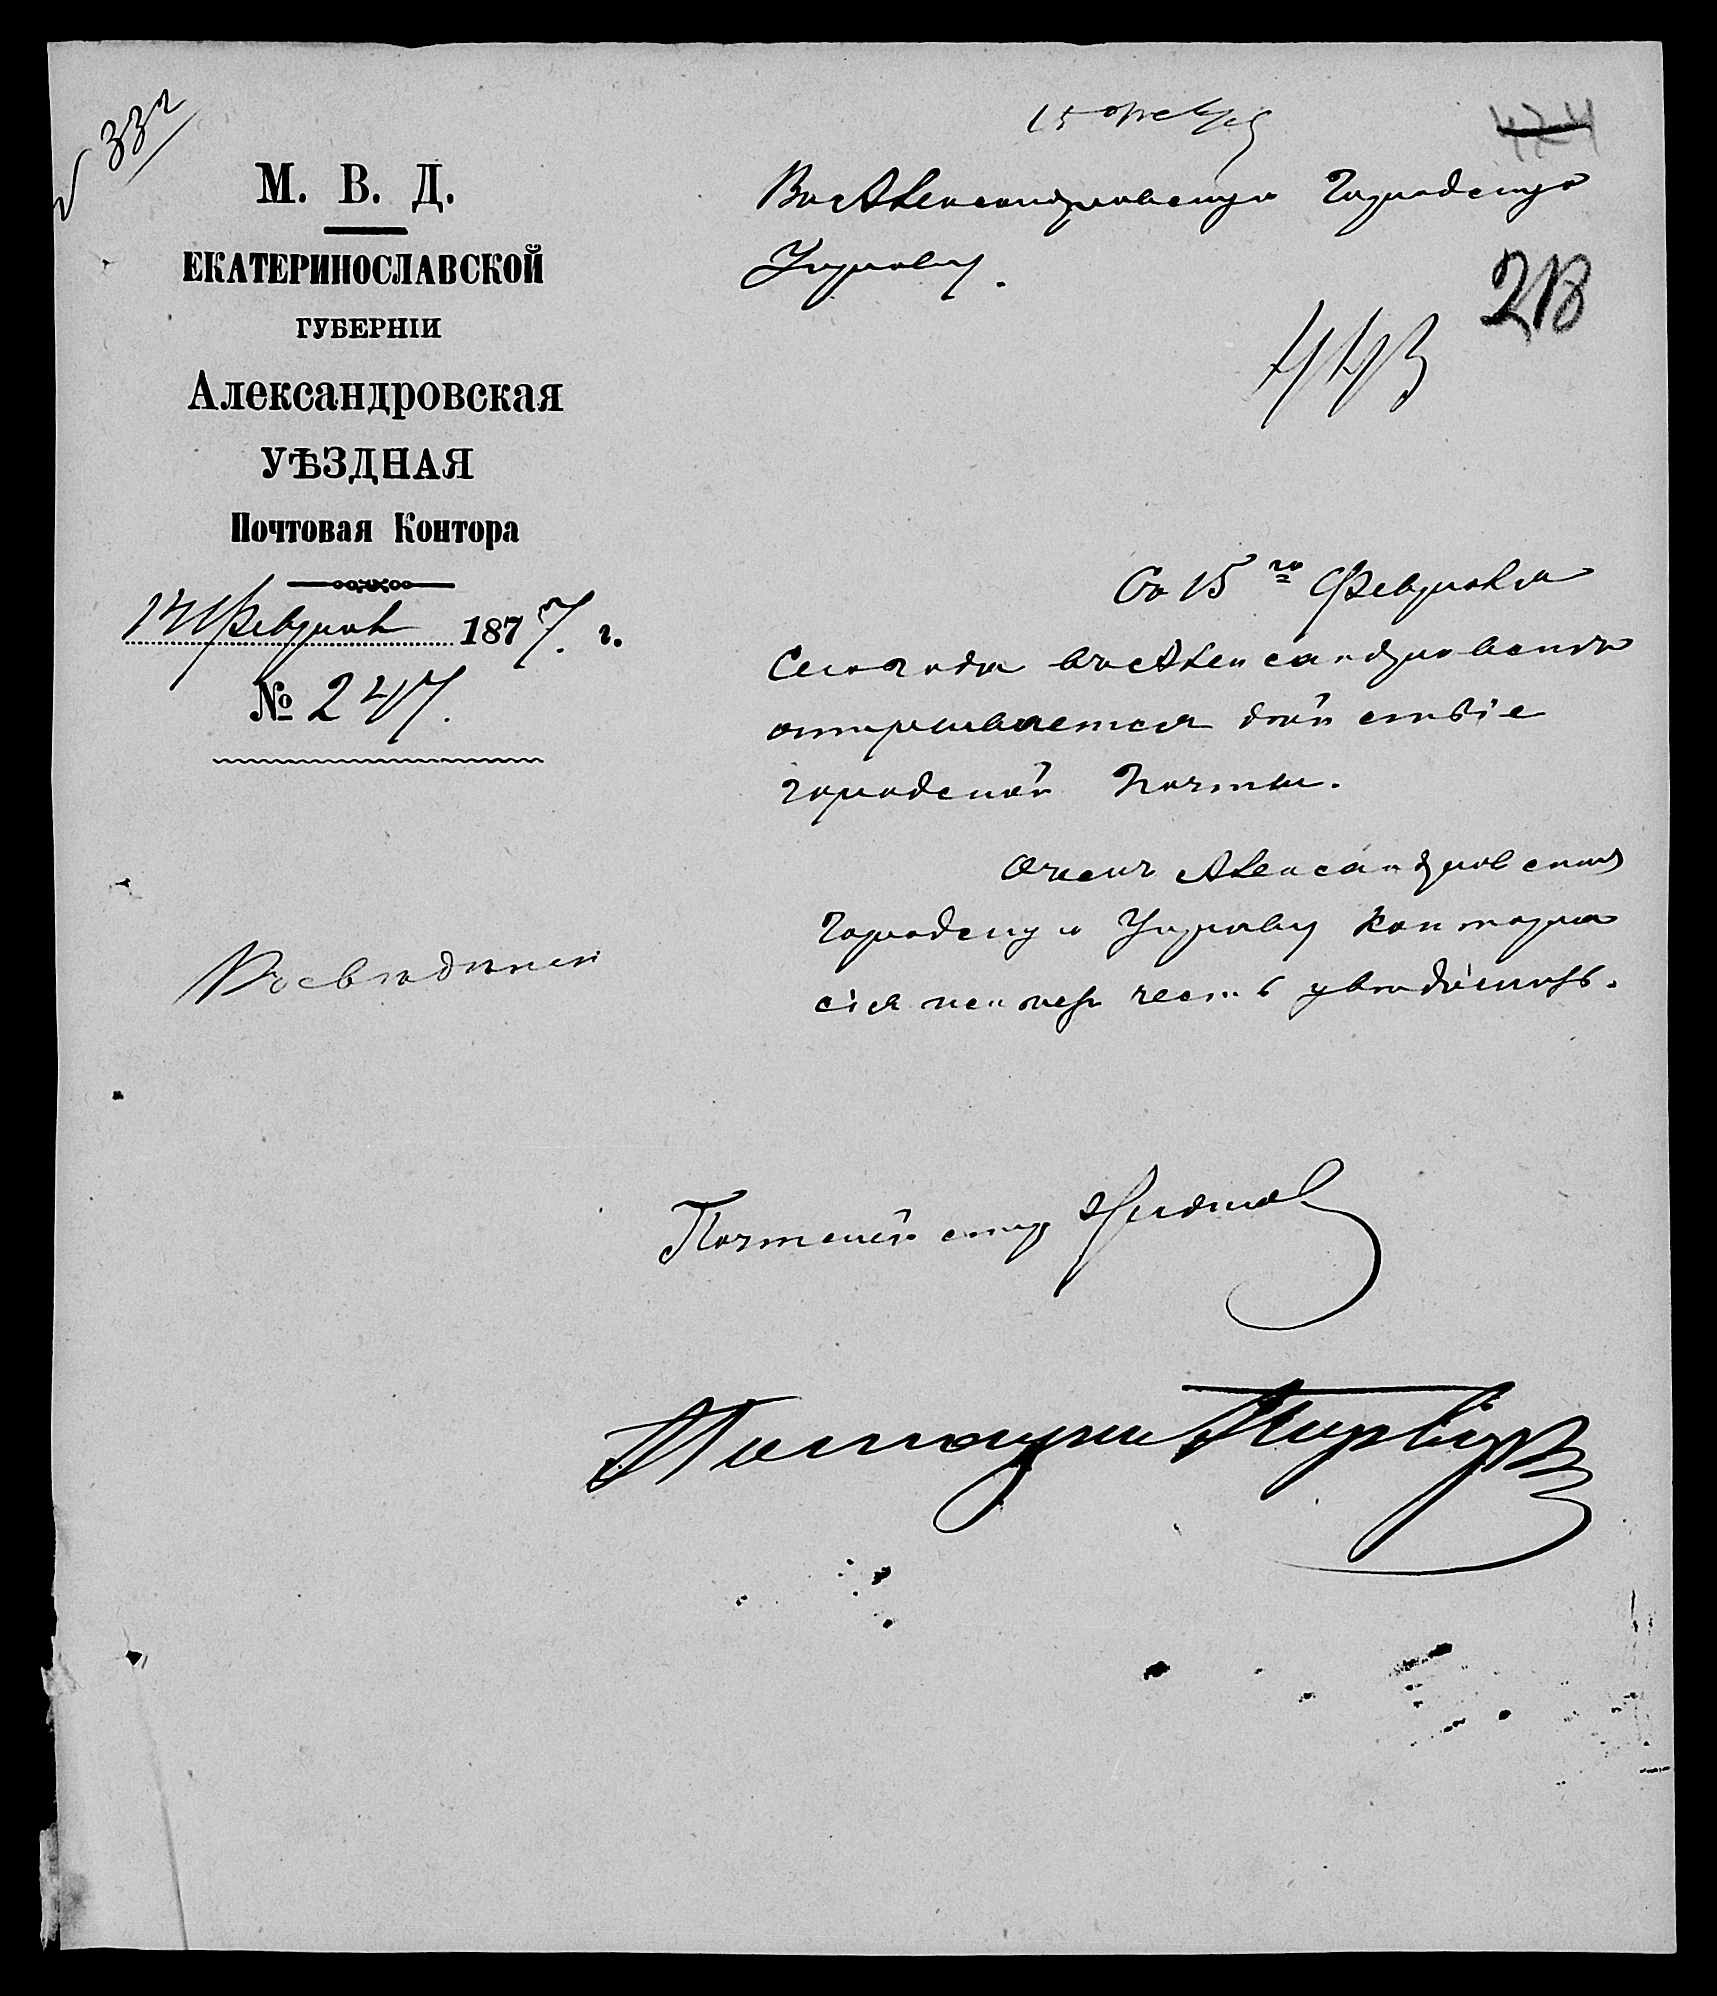 332
15 февр
424
М. В. Д.
ЕКАТЕРИНОСЛАВСКОЙ
ГУБЕРНІИ
Александровская
УѢЗДНАЯ
Почтовая Контора
14 Февраля 1877. г.
№ 247.
Въ Александровскую Городскую
Управу.
218
443
Съ 15го Февраля
сего года въ Александровскѣ
открывается дѣйствіе
городской Почты.
О чемъ Александровскую
Городскую Управу Контора
сія имѣетъ честь увѣдомить.
Къ свѣденію
Почтмейстеръ